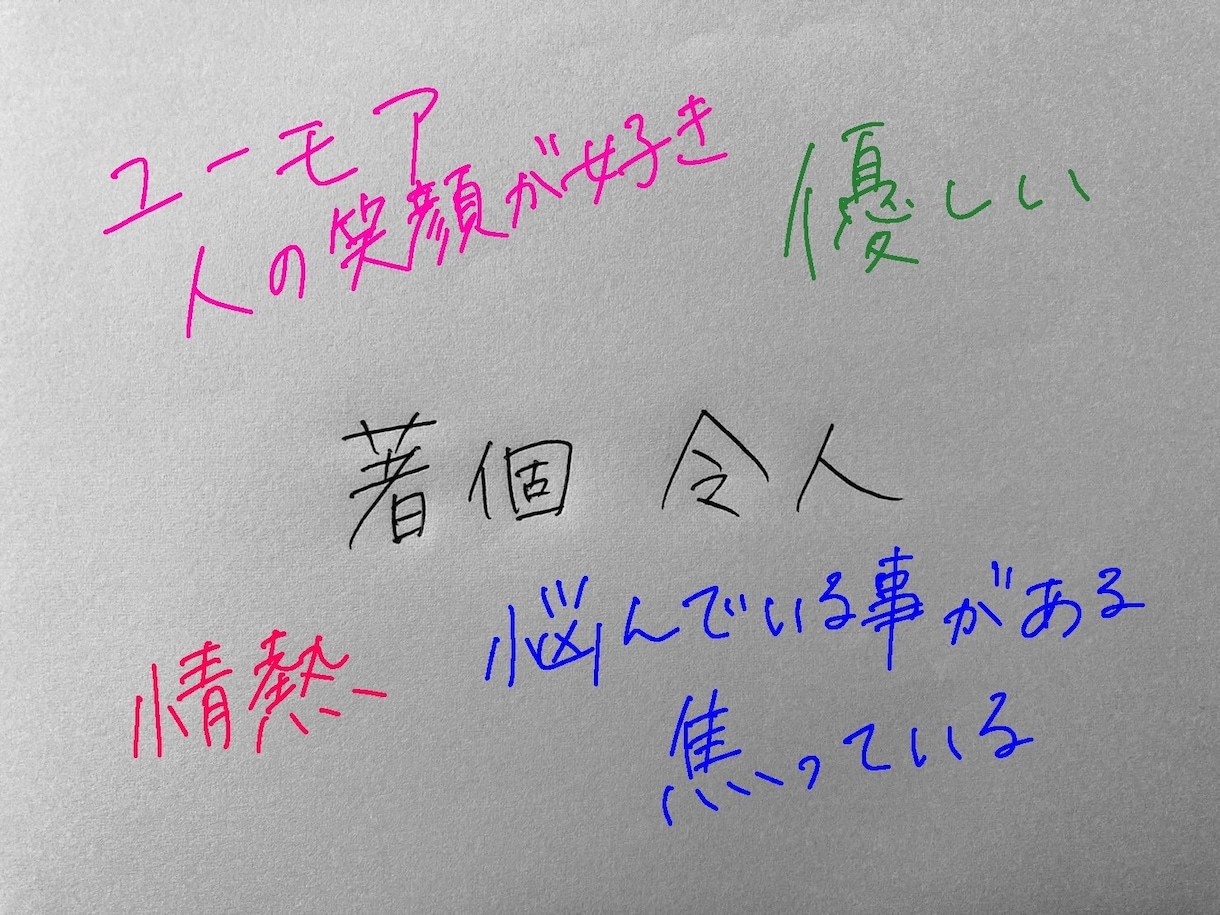 ユーモア
人の笑顔が好き
優しい
著個 令人
悩んでいる事がある
焦っている
情熱